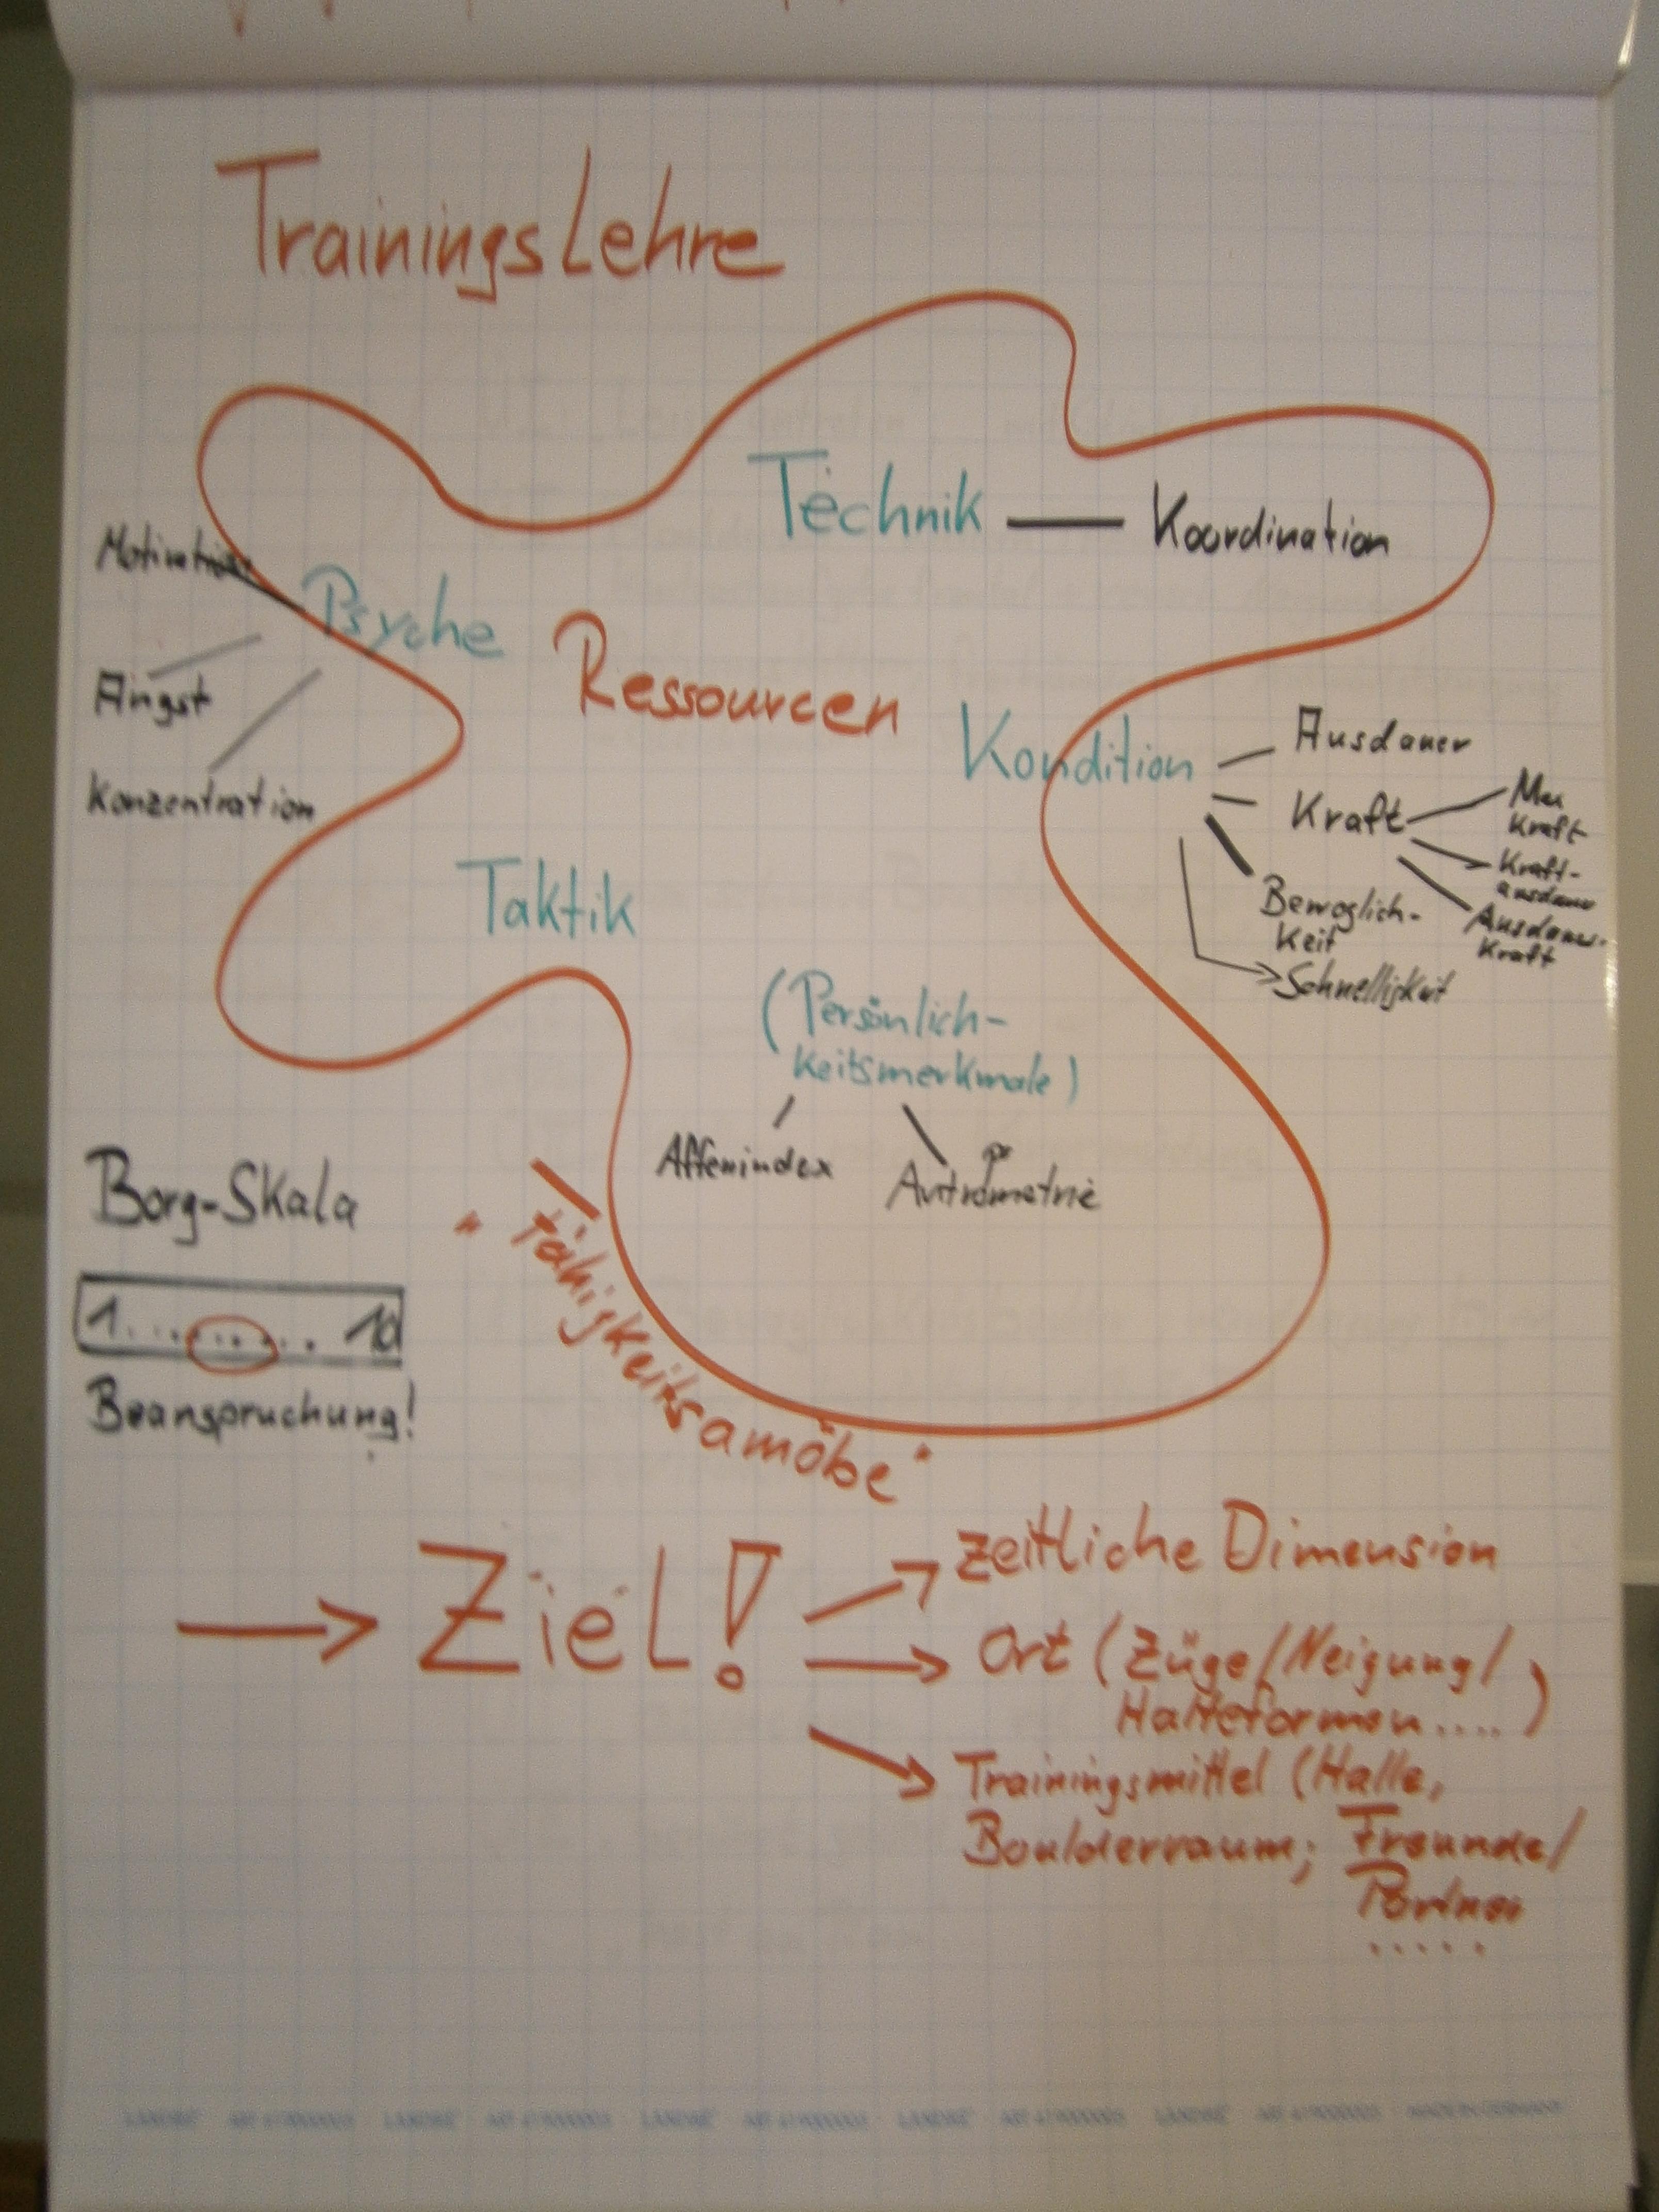 Trainingslehre
Technik — Koordination
Motivation
Psyche
Ressourcen
Angst
Konzentration
Kondition
Ausdauer
Kraft
Max
Kraft
Kraft-
ausdauer
Ausdauer-
kraft
Beweglich-
keit
Schnelligkeit
Taktik
(Persönlich-
keitsmerkmale)
Affenindex
Borg-Skala
1 . . . . . . . . 10
Beanspruchung!
"Fähigkeitsamöbe"
→ Ziel!
→ zeitliche Dimension
→ Ort (Züge/Neigung/
Halteformen....)
→ Trainingsmittel (Halle,
Boulderraum; Freunde/
Partner
.....